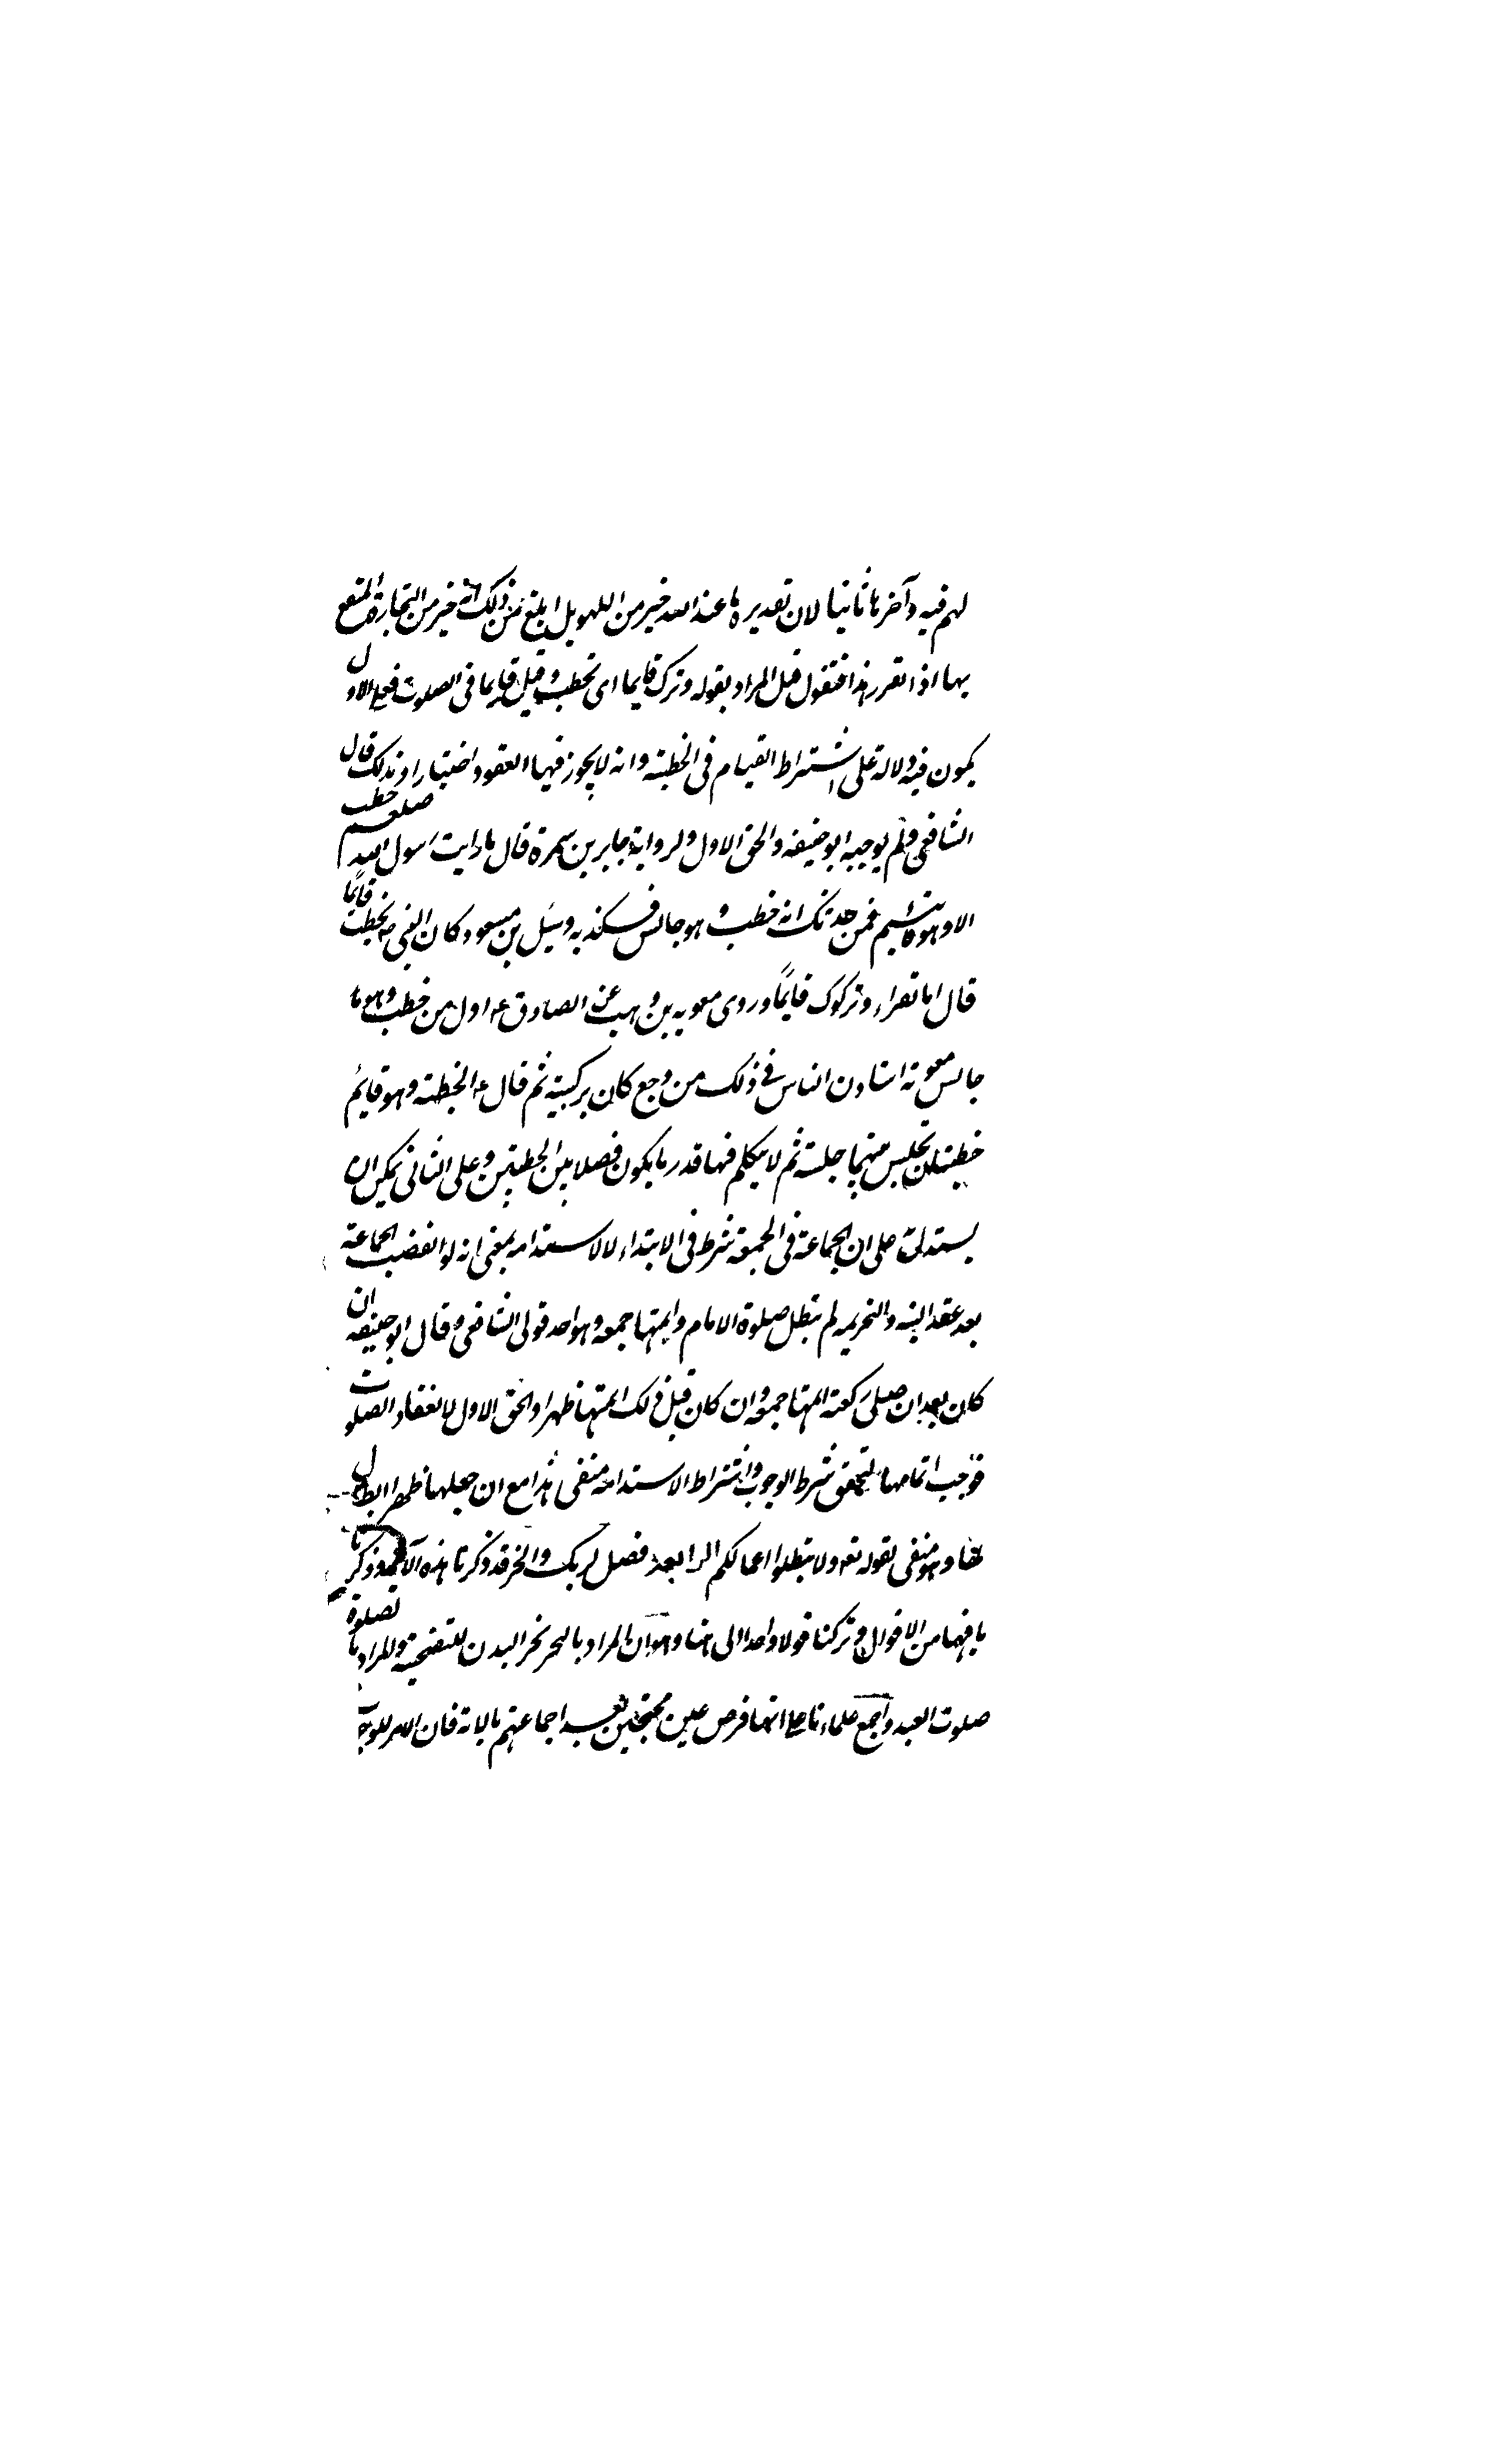 لهم فيه وآخرها ثانيا لان تقديره ما عند الله خير من اللهو بل ابلغ من ذلك انه خير من التجارة المنتفع
بها اذا تقرر هذا فنقول قيل المراد بقوله وتركوك قايما اى تخطب وقيل قايما فى الصلوت فعلى الاول
يكون فيه دلالة على اشتراط القيام فى الخطبة وانه لا يجوز فيها القعود اختيارا وبذلك قال
الشافعى ولم يوجبه ابو حنيفه والحق الاول ولرواية جابر بن سمرة قال ما رايت رسول الله صلعم خطب
الا وهو قائم فمن حدثك انه خطب وهو جالس فكذبه وسئل بن مسعود كان النبى ص يخطب قائما
قال اما تقراء وتركوك قايمًا وروى معويه بن وهب عن الصادق ع اول من خطب وهو
جالس معوية استاذن الناس فى ذلك من وجع كان بركبتيه ثم قال ع الخطبة وهو قايم
خطبتان يجلس بينهما جلسة ثم لا يتكلم فيها قدر ما يكون فصلا بين الخطبتين وعلى الثانى يمكن ان
يستدل على ان الجماعة فى الجمعة شرط فى الابتداء لا الاستدامه بمعنى انه لو انفضت الجماعة
بعد عقد النية والتحريمه لم تبطل صلوة الامام وايتمها جمعه وهو احد قولى الشافعى وقال ابو حنيفه ان
كان بعد ان صلى ركعة اتمها جمعه وان كان قبل ذلك اتمها ظهرا والحق الاول لانعقاد الصلوت
فوجب اتمامها لتحقق شرط الوجوب واشتراط الاستدامه منفى هذا مع ان جعلها ظهرا ابطال
لها وهو منفى لقوله تعه ولا تبطلوا اعمالكم الرابعه فصل لربك وانحر قد ذكرنا هذه الآية وذكرنا
ما فيها من الاقوال وتركنا قولا واحدا الى هنا وهو ان المراد بالنحر نحر البدن للتضحية والمراد بالصلوة
صلوت العيد واجمع علماءنا على انها فرض عين محتجين بعد اجماعهم بالاية فان الامر للوجوب